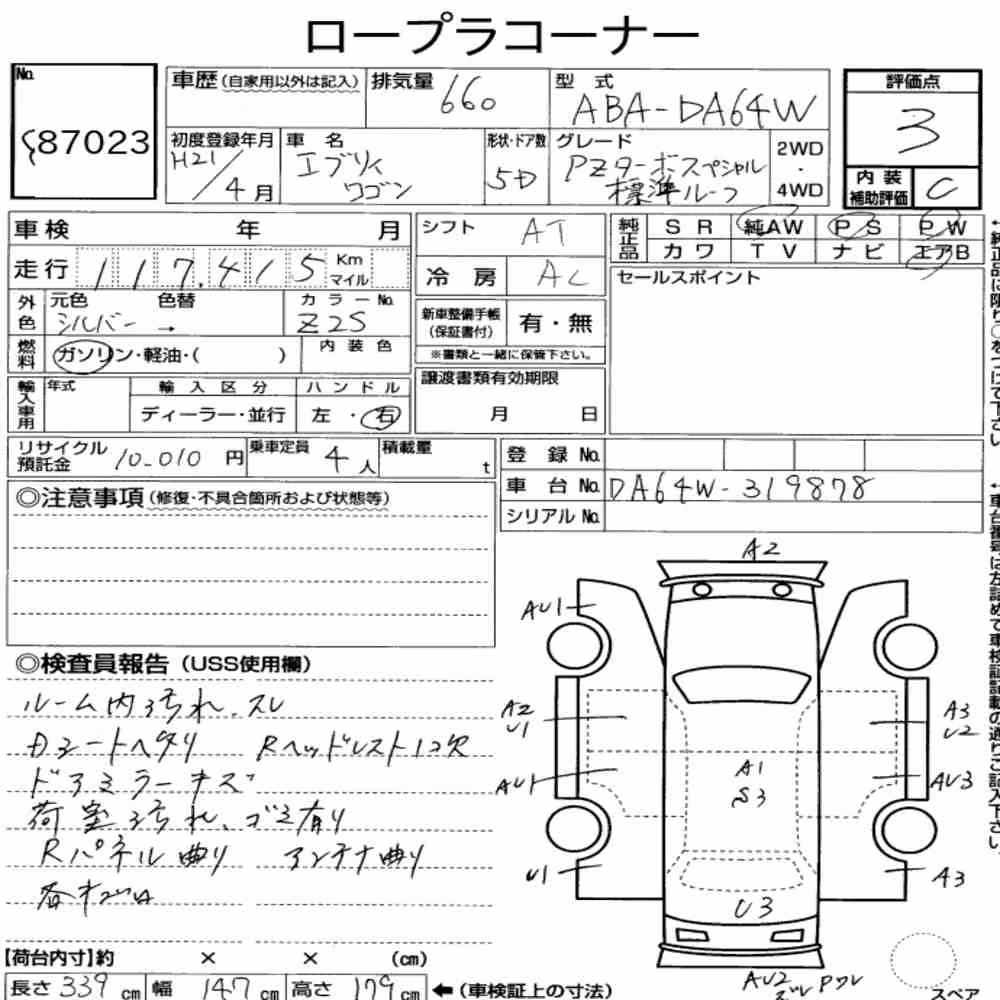 ロープラコーナー
No.
87023
車歴 (自家用以外は記入)
排気量 660
型式 ABA-DA64W
評価点
3
初度登録年月
H21/4月
車名
エブリィ
ワゴン
形状・ドア数
5D
グレード
PZターボスペシャル
標準ルーフ
2WD
・
4WD
内装
補助評価 C
車検 年 月
走行 117,415 Km
マイル
シフト AT
冷房 AC
純正品
SR 純AW PS PW
カワ TV ナビ エアB
セールスポイント
外色
元色 色替
シルバー →
カラーNo.
Z2S
新車整備手帳
(保証書付) 有・無
※書類と一緒に保管下さい。
燃料
ガソリン・軽油・( )
内装色
譲渡書類有効期限
月 日
輸入車用
年式
輸入区分
ディーラー・並行
ハンドル
左・右
リサイクル
預託金 10,010円
乗車定員 4人
積載量 t
登録No.
車台No. DA64W-319878
シリアルNo.
◎注意事項 (修復・不具合箇所および状態等)
◎検査員報告 (USS使用欄)
ルーム内汚れ、スレ
Dシートヘタリ Rヘッドレスト1コ欠
ドアミラーキズ
荷室汚れ、ゴミ有り
Rパネル曲り アンテナ曲り
各サビ
A2
AU1
A2
U1
A3
U2
A1
S3
AU1
AU3
U1
A3
U3
AU2
スペア
【荷台内寸】約 × × (cm)
長さ 339 cm 幅 147 cm 高さ 179 cm ←(車検証上の寸法)
↑純正品に限り○をつけて下さい
↑車台番号は左詰めで車検証記載の通りご記入下さい。